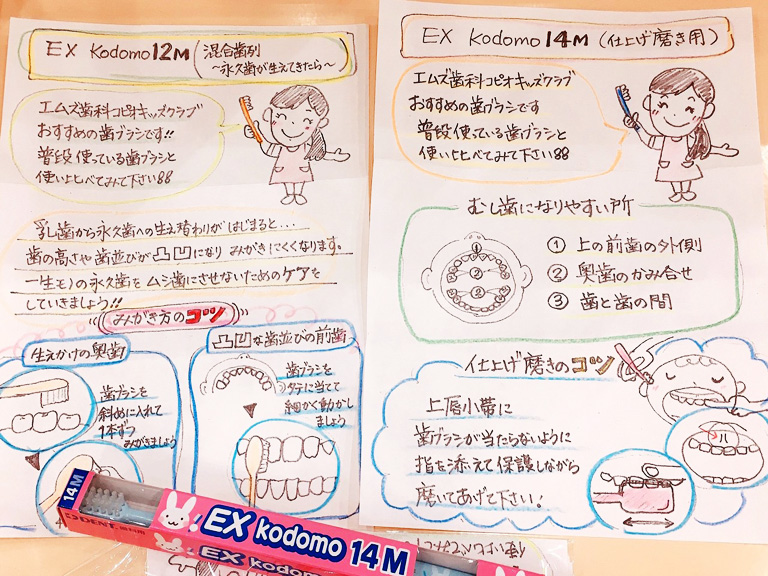 EX Kodomo 12M
混合歯列
〜永久歯が生えてきたら〜
エムズ歯科コピオキッズクラブ
おすすめの歯ブラシです!!
普段使っている歯ブラシと
使い比べてみて下さい
乳歯から永久歯への生え替わりがはじまると…
歯の高さや歯並びが凸凹になり みがきにくくなります。
一生モノの永久歯を ムシ歯にさせないためのケアを
していきましょう!!
みがき方のコツ
生えかけの奥歯
歯ブラシを
斜めに入れて
1本ずつ
みがきましょう
凸凹な歯並びの前歯
歯ブラシを
タテに当てて
細かく動かし
ましょう
EX Kodomo 14M (仕上げ磨き用)
エムズ歯科コピオキッズクラブ
おすすめの歯ブラシです
普段使っている歯ブラシと
使い比べてみて下さい
むし歯になりやすい所
① 上の前歯の外側
② 奥歯のかみ合せ
③ 歯と歯の間
①
②
②
③
仕上げ磨きのコツ
上唇小帯に
歯ブラシが当たらないように
指を添えて保護しながら
磨いてあげて下さい!
14M
DENT.
EX kodomo 14M
EX kodomo 14M